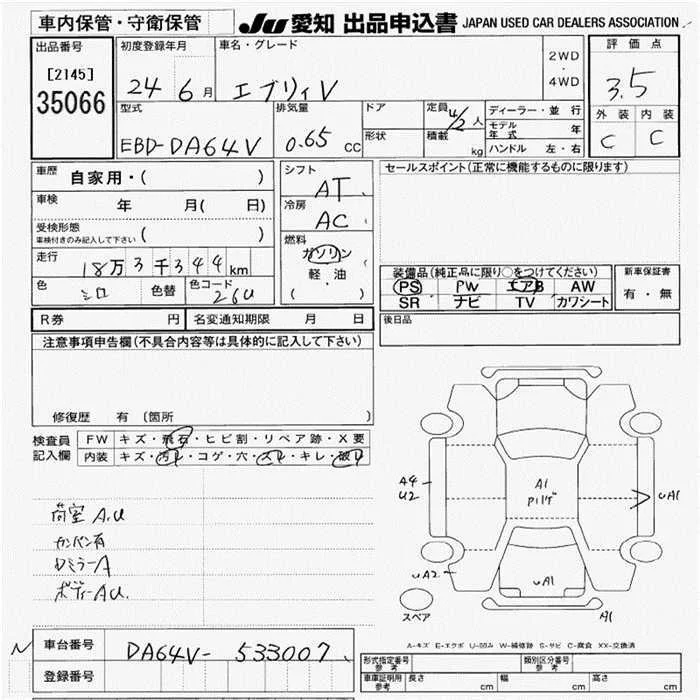 車内保管・守衛保管
JU 愛知 出品申込書 JAPAN USED CAR DEALERS ASSOCIATION
出品番号
[2145]
35066
初度登録年月
24 6 月
車名・グレード
エブリィV
2WD
・
4WD
評価点
3.5
外装 内装
C C
型式
EBD-DA64V
排気量
0.65 CC
ドア
形状
定員 4/2 人
積載 kg
ディーラー・並 行
モデル年式 年
ハンドル 左・右
車歴 自家用・( )
車検 年 月( 日)
受検形態
車検付きのみ記入して下さい ( )
走行 18万3千344km
色 シロ 色替 色コード 26U
シフト
AT
冷房
AC
燃料
ガソリン
軽・油
( )
セールスポイント(正常に機能するものに限ります)
装備品(純正品に限り○をつけてください)
PS PW エアB AW
SR ナビ TV カワシート
新車保証書
有・無
後日品
R券 円 名変通知期限 月 日
注意事項申告欄(不具合内容等は具体的に記入して下さい)
修復歴 有 〔箇所 〕
検査員
記入欄
FW キズ・飛石・ヒビ割・リペア跡・X要
内装 キズ・汚れ・コゲ・穴・スレ・キレ・破れ
荷室 A.U
カンバン有
ロミラーA
ボディーAU.
A4
U2
A1
UA1
UA2
UA1
A1
スペア
A-キズ E-エクボ U-凹み W-補修跡 S-サビ C-腐食 XX-交換済
車台番号 DA64V-533007
登録番号
形式指定番号
参考
類別区分番号
参考
車庫証明用
参考
長さ cm 幅 cm 高さ cm